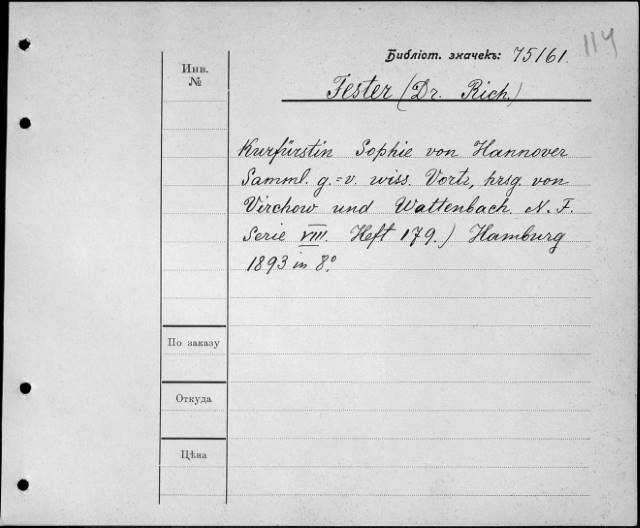 114
Библіот. значекъ: 75/61.
Инв.
№
Fester (Dr. Rich.)
Kurfürstin Sophie von Hannover
Samml. g.=v. wiss. Vortr, hrsg. von
Virchow und Wattenbach. N. F.
Serie VIII. Heft 179.) Hamburg
1893 in 8º.
По заказу
Откуда
Цѣна